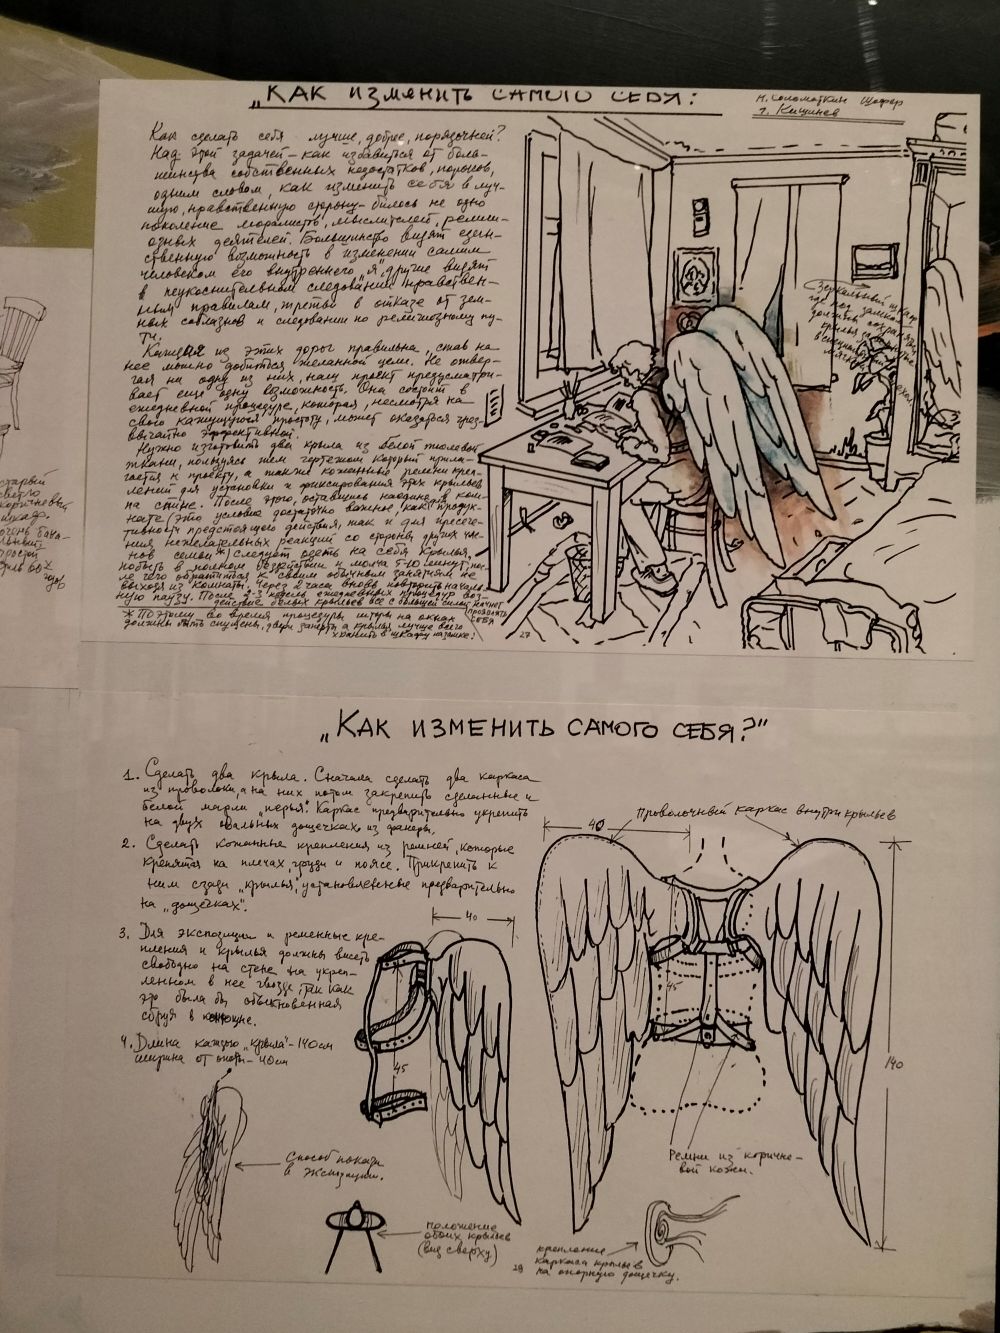 „КАК ИЗМЕНИТЬ САМОГО СЕБЯ?
Н. Соломаткин Шофер
г. Кишинев
Как сделать себя лучше, добрее, порядочней?
Над этой задачей – как избавиться от боль-
шинства собственных недостатков, пороков,
одним словом, как изменить себя в луч-
шую, нравственную сторону – билось не одно
поколение моралистов, мыслителей, религи-
озных деятелей. Большинство видят един-
ственную возможность в изменении самим
человеком его внутреннего „я", другие видят
в неукоснительном следовании нравствен-
ным правилам, третьи в отказе от зем-
ных соблазнов и следовании по религиозному пу-
ти.
Каждая из этих дорог правильна, став на
нее можно добиться желанной цели. Не отвер-
гая ни одну из них, наш проект предусматри-
вает еще одну возможность. Она состоит в
ежедневной процедуре, которая, несмотря на
свою кажущуюся простоту, может оказаться чрез-
вычайно эффективной.
Нужно изготовить два крыла из белой тюлевой
ткани, пользуясь тем чертежом который прила-
гается к проекту, а также кожанные ремни креп-
лений для установки и фиксирования этих крыльев
на спине. После этого, оставшись наедине в ком-
нате (это условие достаточно важное, как продук-
тивности предстоящего действия, так и для пресече-
ния нежелательных реакций со стороны других чле-
нов семьи*) следует одеть на себя крылья,
побыть в полном бездействии и молча 5-10 минут, пос-
ле чего обратиться к своим обычным занятиям не
выходя из комнаты. Через 2 часа вновь повторить началь-
ную паузу. После 2-3 недель ежедневных процедур воз-
действие белых крыльев все с большей силой начнет
проявлять
себя
* Поэтому во время процедуры шторы на окнах
должны быть спущены, двери заперты а крылья лучше всего
хранить в шкафу на замке!
Зеркальный шкаф
где под замком
должны сохраняться
крылья
27
старый
светло
коричневый
шкаф.
очень бана-
льный
простой
„Как изменить самого себя?"
1. Сделать два крыла. Сначала сделать два каркаса
из проволоки, а на них потом закрепить сделанные из
белой марли „перья". Каркас предварительно укрепить
на двух овальных дощечках из фанеры.
2. Сделать кожанные крепления из ремней, которые
крепятся на плечах, груди и поясе. Прикрепить к
ним сзади „крылья", установленные предварительно
на „дощечках".
3. Для экспозиции и ременные кре-
пления и крылья должны висеть
свободно на стене на укреп-
ленном в нее гвозде, так как
это была бы обыкновенная
сбруя в конюшне.
4. Длина каждого „крыла" – 140 см
ширина от опоры – 40 см
Проволочный каркас внутри крыльев
40
40
45
45
140
Способ показа
в экспозиции.
положение
обоих крыльев
(вид сверху)
Ремни из коричне-
вой кожи.
крепление
каркаса крыльев
на опорную дощечку.
28